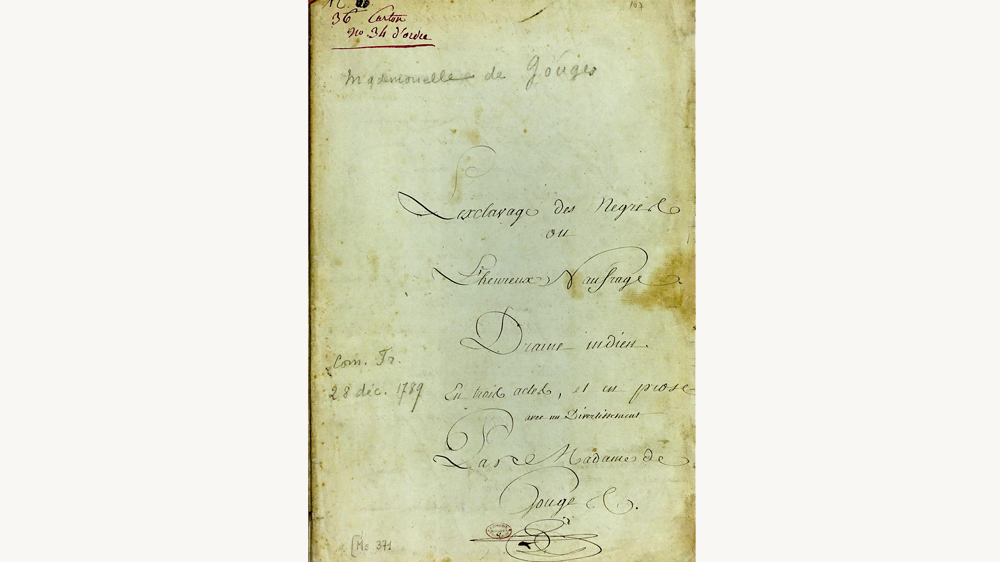 36e Carton
No. 34 d'ordre
107
Mademoiselle de Gouges
L'esclavage des Negres
ou
L'heureux Naufrage.
Drame indien.
Com. Fr.
28 déc. 1789
En trois actes, et en prose
avec un Divertissement
Par Madame de
Gouges.
Ms 371